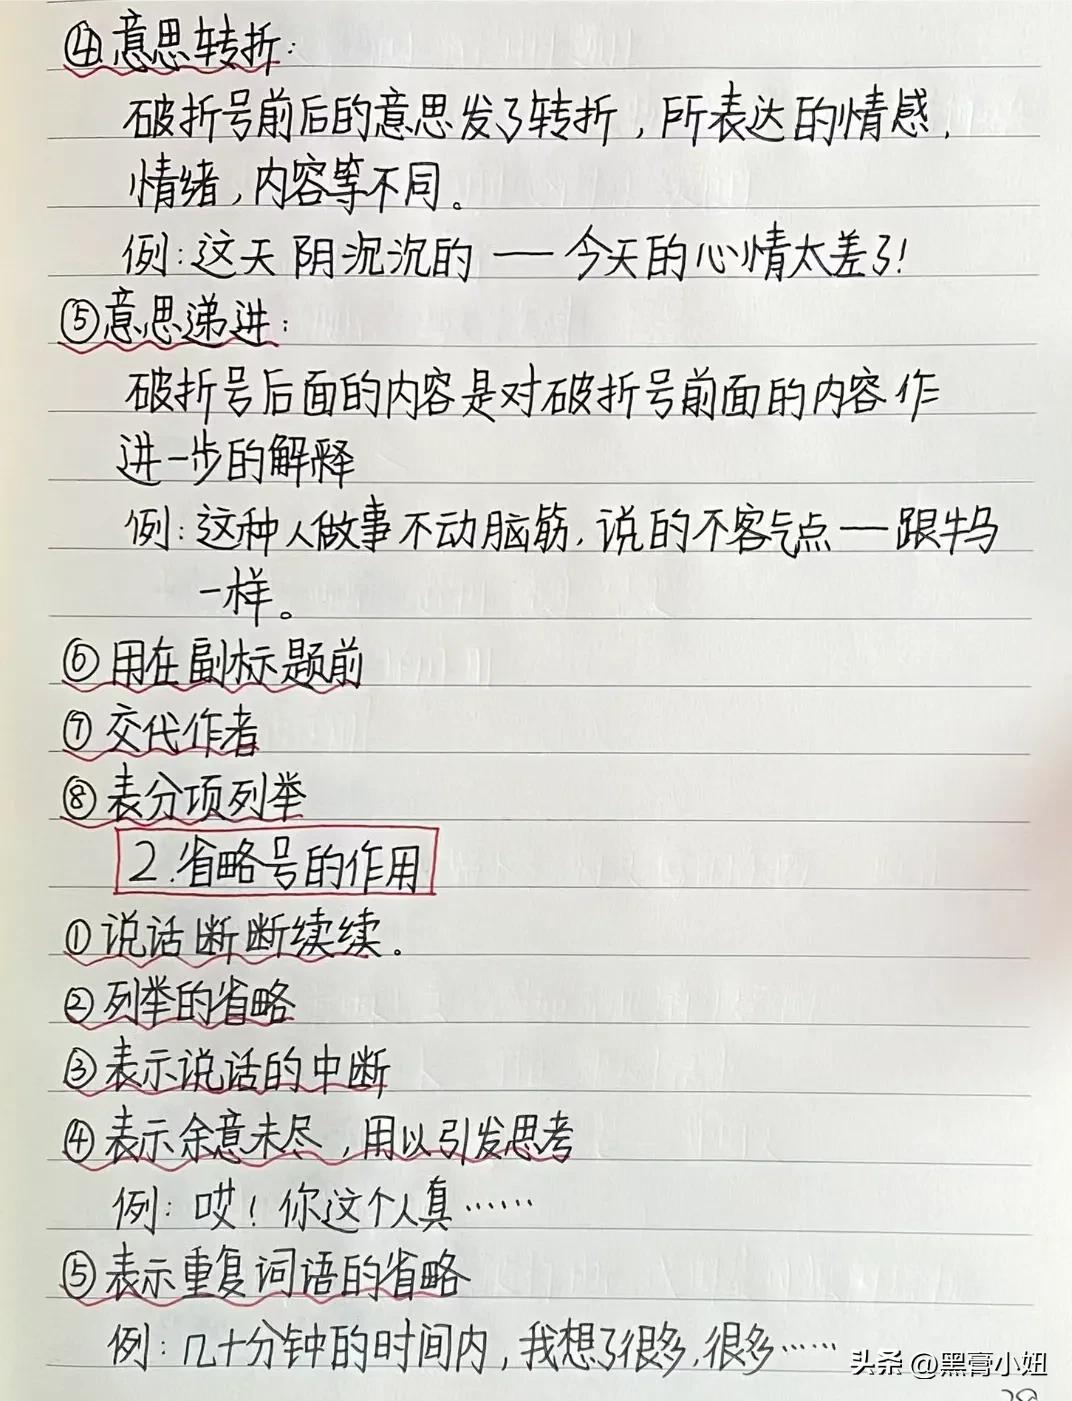 ④意思转折:
破折号前后的意思发了转折,所表达的情感,
情绪,内容等不同。
例:这天阴沉沉的——今天的心情太差了!
⑤意思递进:
破折号后面的内容是对破折号前面的内容作
进一步的解释
例:这种人做事不动脑筋,说的不客气点——跟牛马
一样。
⑥用在副标题前
⑦交代作者
⑧表分项列举
2.省略号的作用
①说话断断续续。
②列举的省略
③表示说话的中断
④表示余意未尽,用以引发思考
例:哎!你这个人真……
⑤表示重复词语的省略
例:几十分钟的时间内,我想了很多,很多……
头条 @黑膏小妞